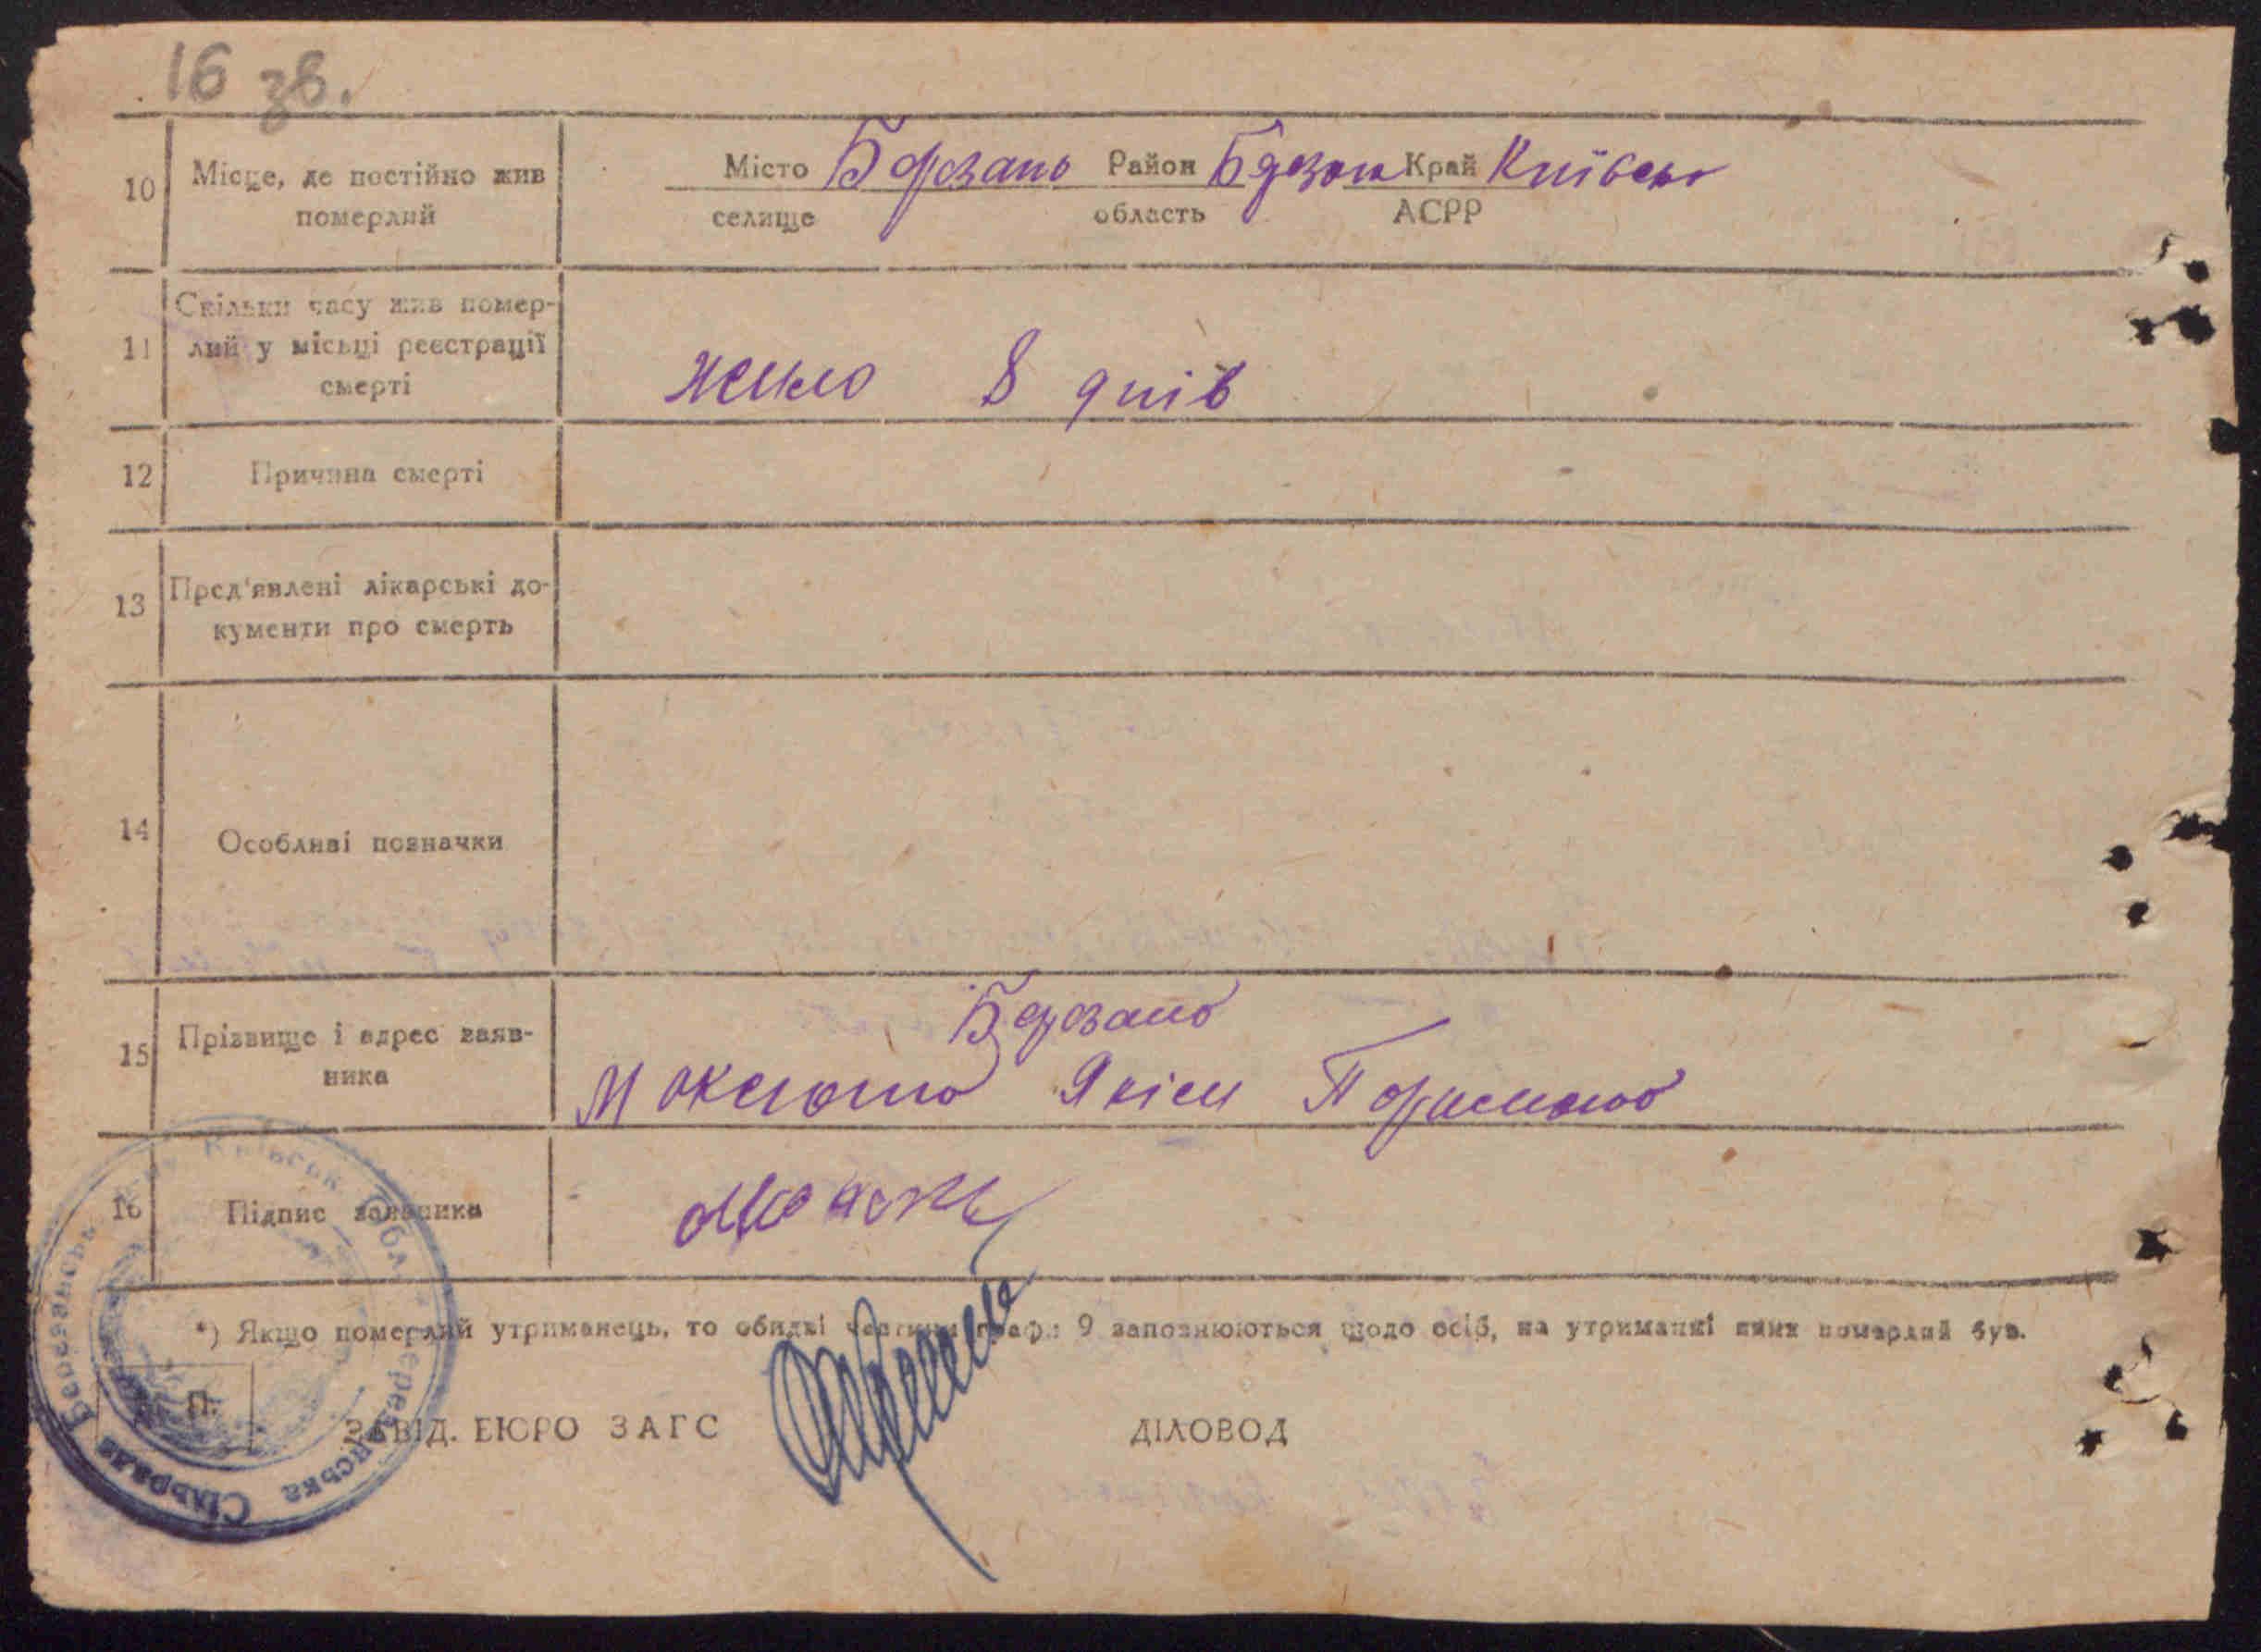 16 зв.
10 Місце, де постійно жив померлий
Місто Березань Район Березан Край Київськ
селище область АСРР
11 Скільки часу жив помер-
лий у місьці реєстрації
смерті
жило 8 днів
12 Причина смерті
13 Пред'явлені лікарські до-
кументи про смерть
14 Особливі позначки
15 Прізвище і адрес заяв-
ника
Березань
Якім
16 Підпис заявника
*) Якщо померлий утриманець, то обидві частини графи 9 заповнюються щодо осіб, на утриманні яких померлий був.
П.
ЗАВІД. БЮРО ЗАГС ДІЛОВОД
Київськ. Обл. Березанська Сільрада